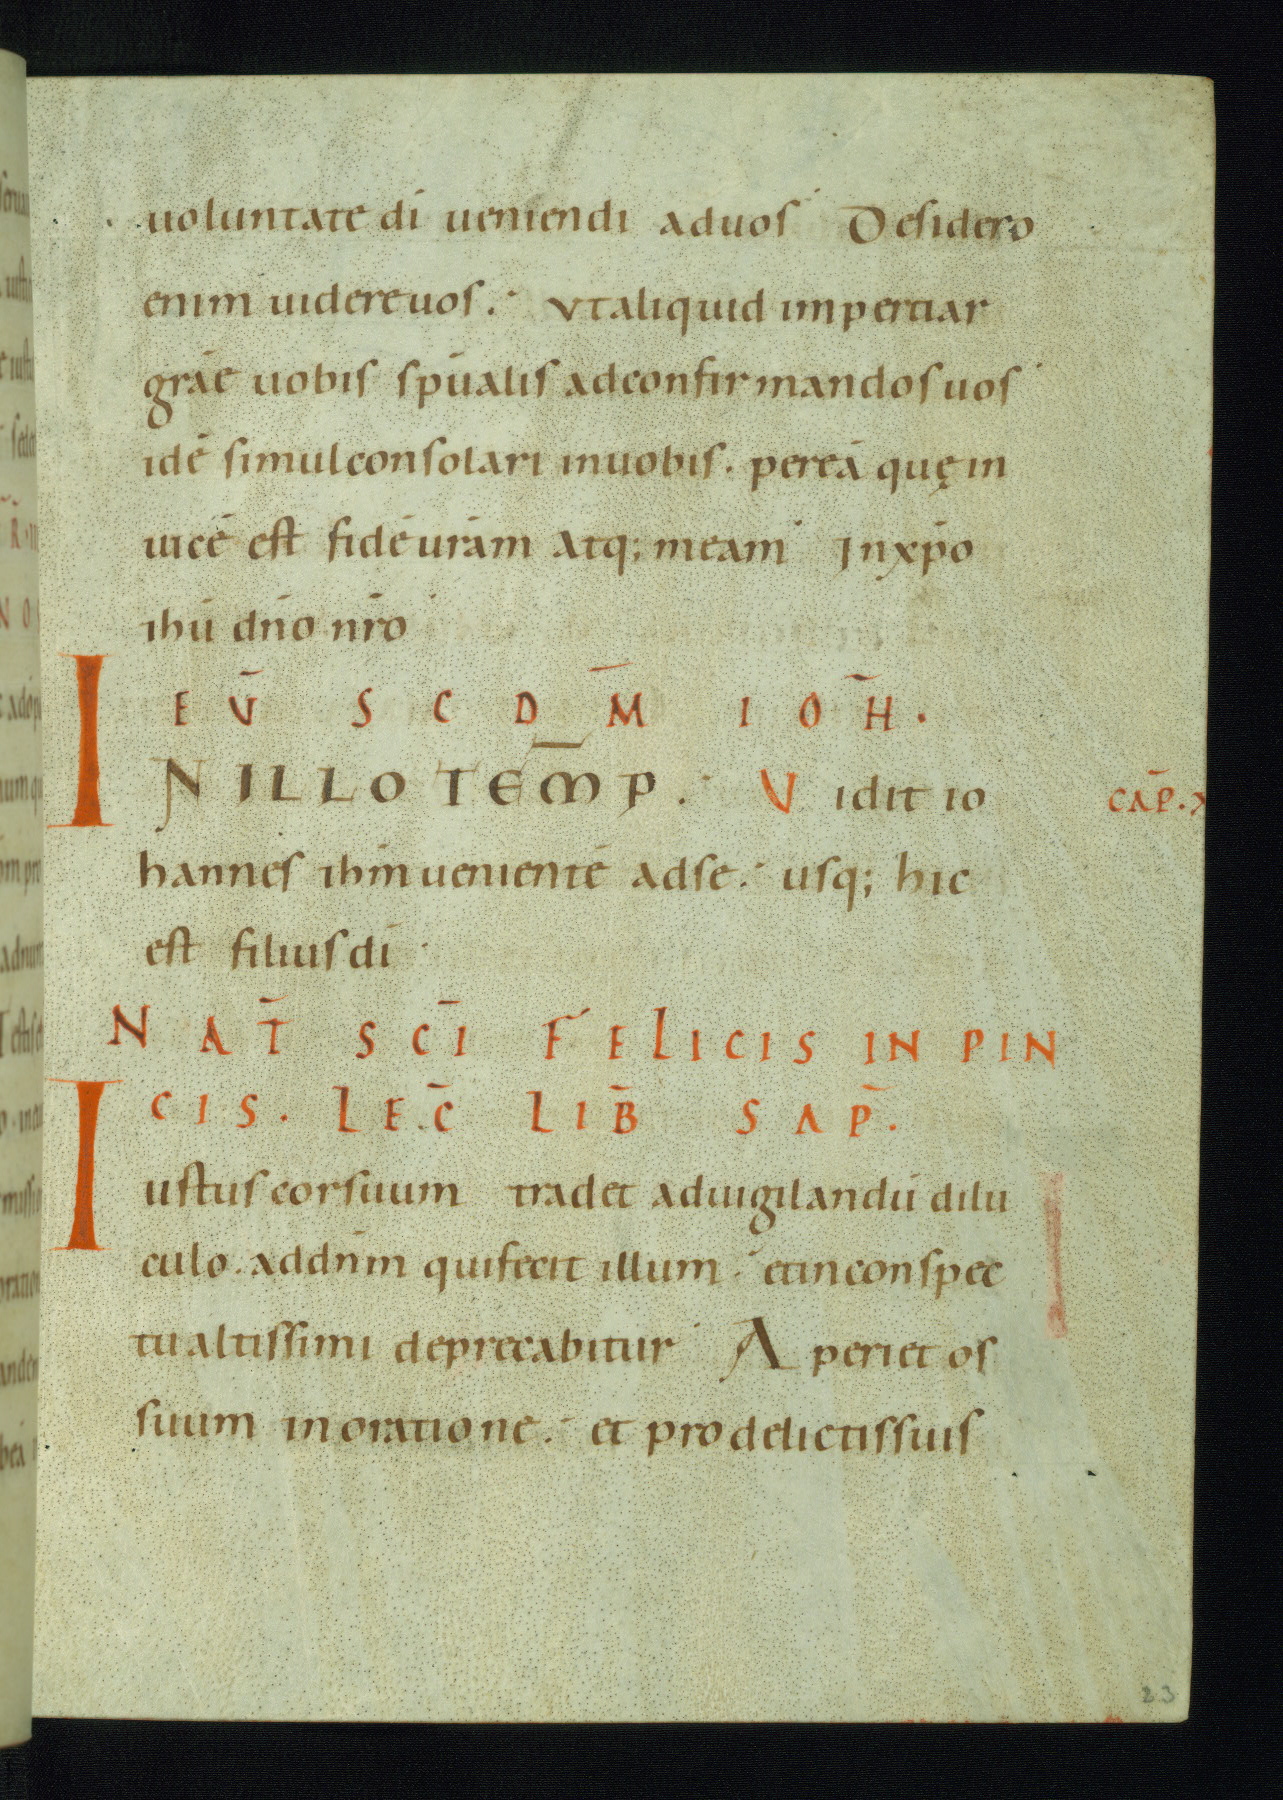 uoluntate dī ueniendi aduos Desidero
enim uidereuos. Vtaliquid impertiar
grāe uobis spūalis adconfirmandosuos
idē simulconsolari inuobis. pereā quęin
uicē est fidēurām Atq; meam Inxp̄o
ihū dn̄o nr̄o
EṼ SCDM̄ IOH̄.
INILLOTEM̄P. Vidit io
CAP̄.X
hannes ihm̄uenientē adse. usq; hic
est filiusdī
NAT̄ SC̄I FELICIS IN PIN
CIS. LEC̄ LIB̄ SAP̄.
Iustuscorsuum tradet aduigilandū dilu
culo. addn̄m quifecit illum. etinconspec
tualtissimi deprecabitur Aperiet os
suum inoratione. et prodelictissuis
23